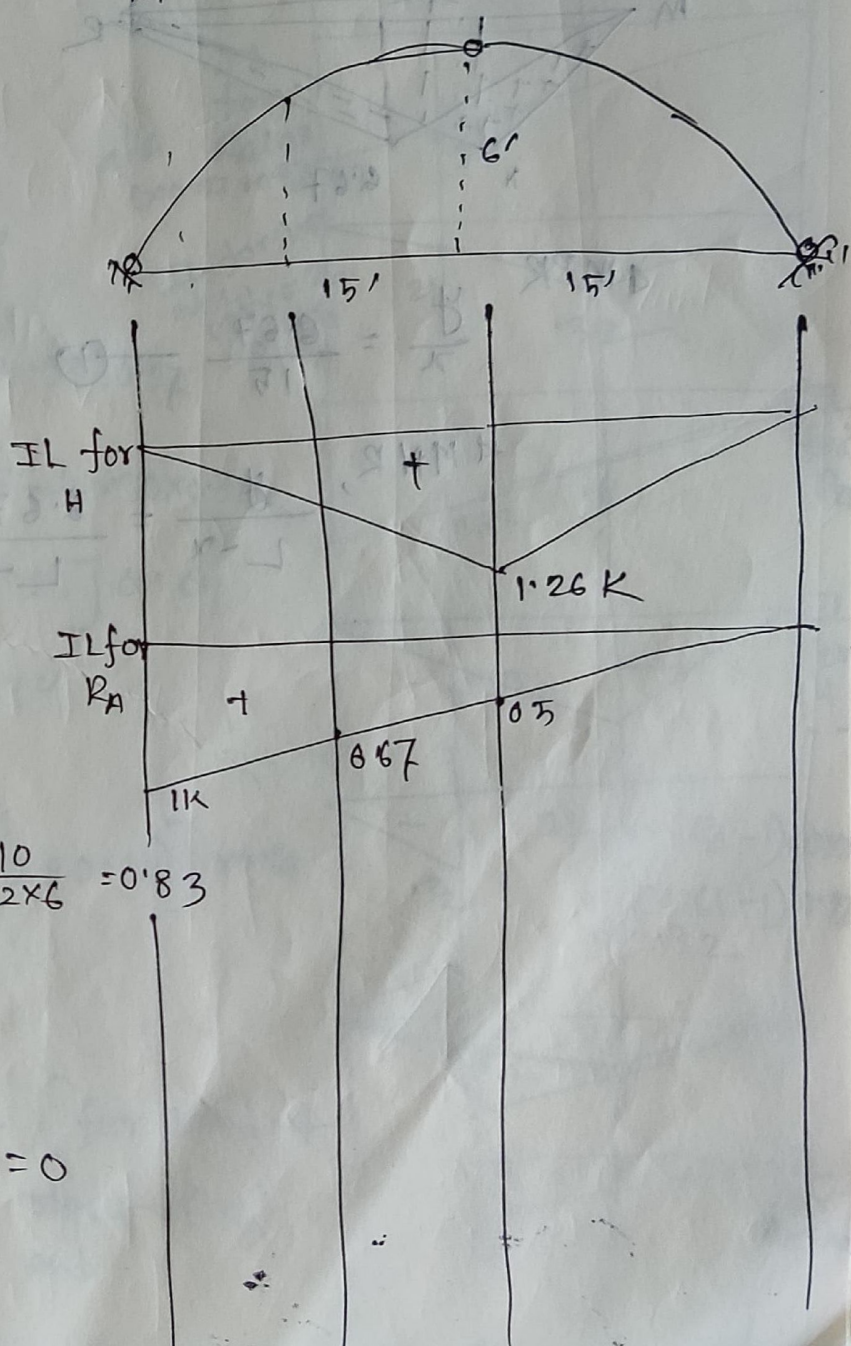 6'
15' 15'
IL for
H
+
1.26 K
IL for
RA
+
05
067
1K
10
2×6 =0.83
=0